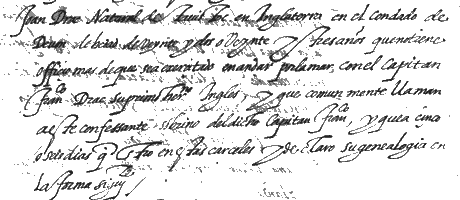 Juan Drac Natural de Tauistoc en Inglaterra en el condado de
de hedad de veynte y dos o veynte y tres años que no tiene
officio mas de que sea exercitado en andar por la mar, con el Capitan
Fran.co Drac su primo her.no Ingles, y que comunmente llaman
a este confessante sobrino del dicho Capitan Fran.co, y que a cinco
o seis dias q̃ esta en estas carceles y declaro su genealogia en
la forma sig.te